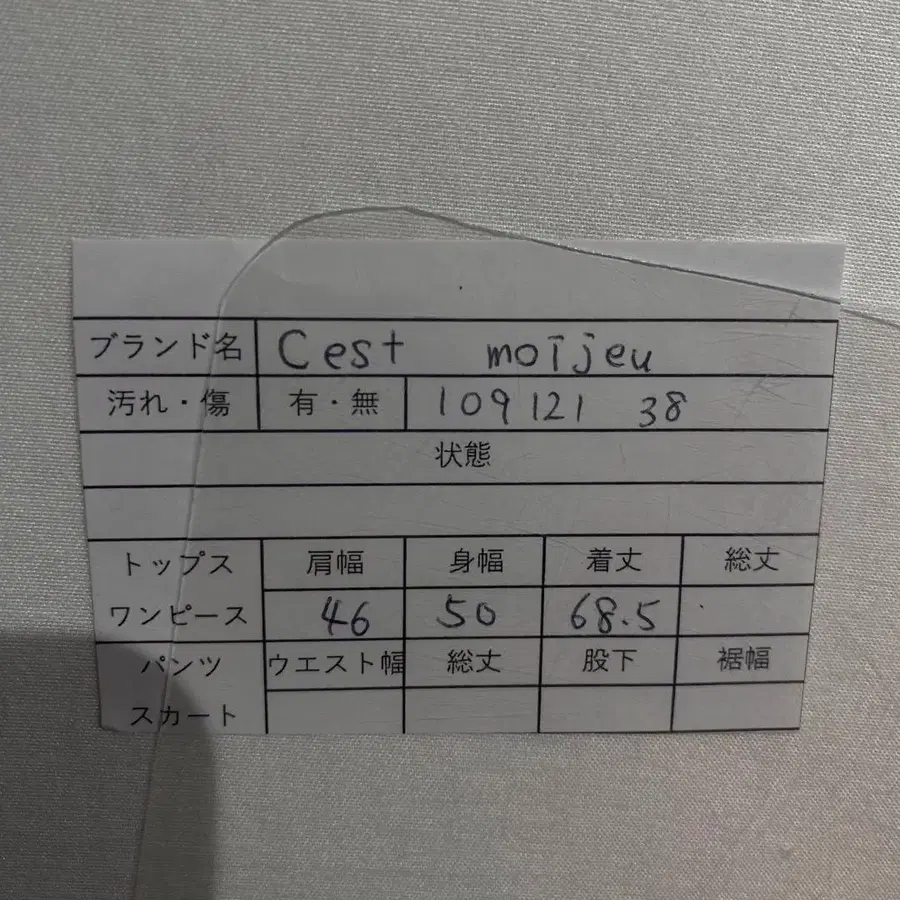 ブランド名 Cest moijeu
汚れ・傷 有・無 109121 38
状態
トップス 肩幅 身幅 着丈 総丈
ワンピース 46 50 68.5
パンツ ウエスト幅 総丈 股下 裾幅
スカート